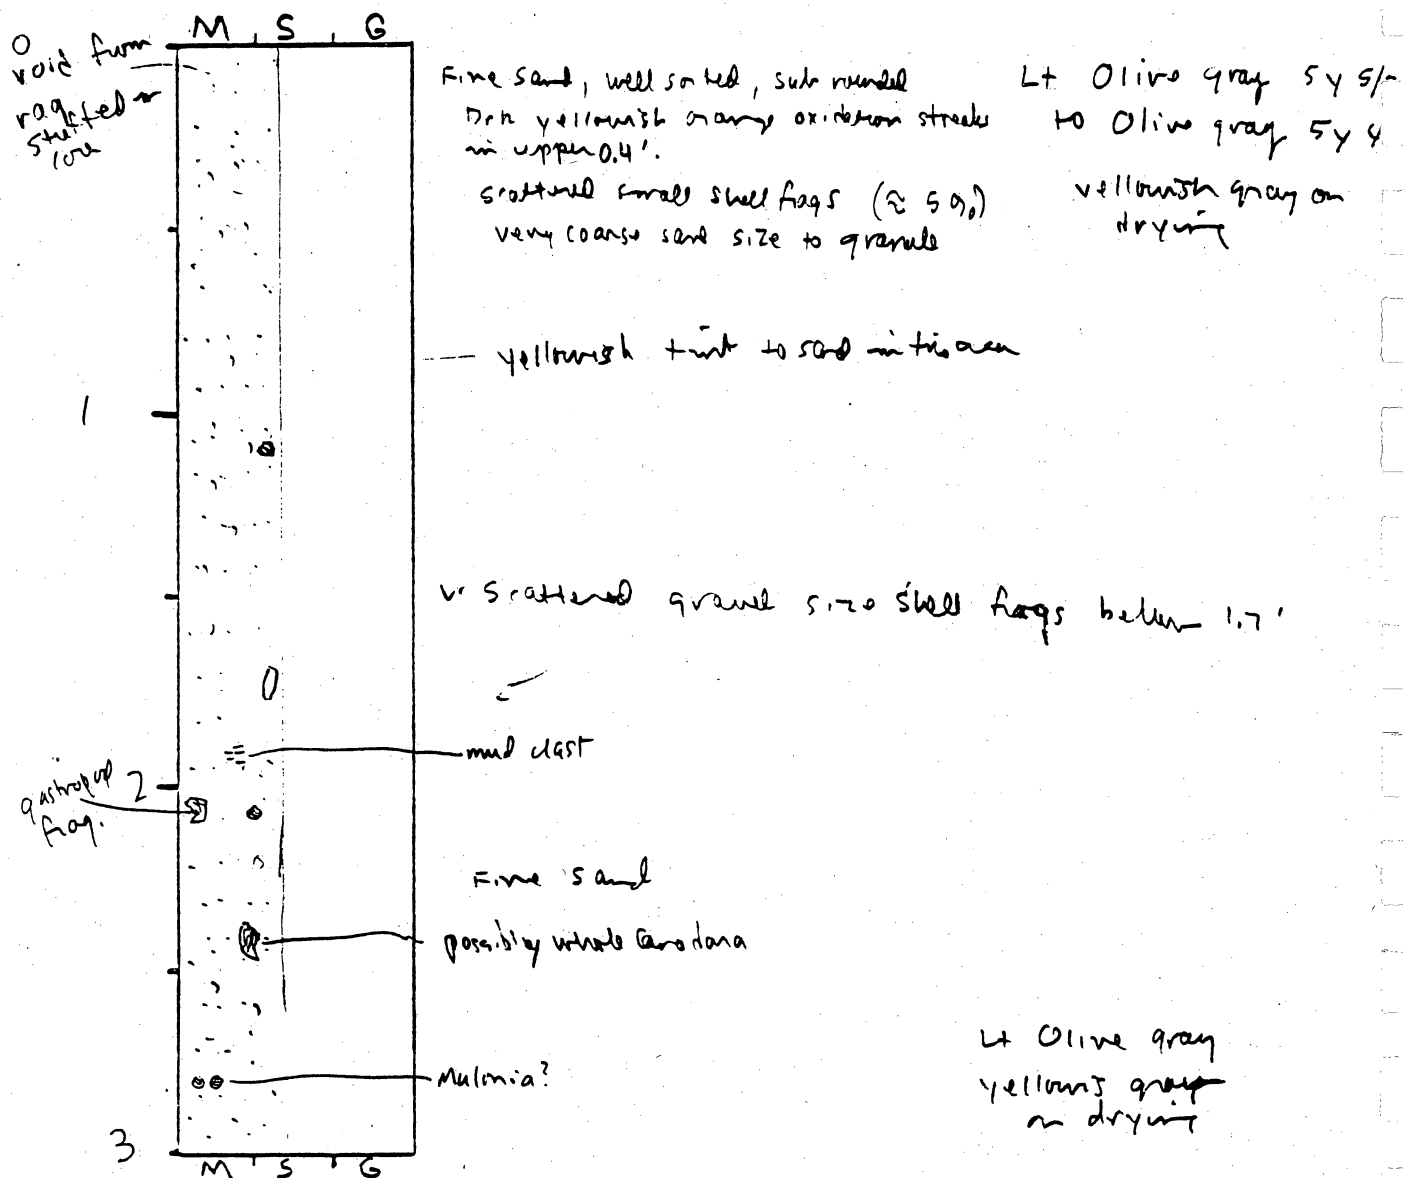 M S G
0
void from
rag
stuffed
core
Fine sand, well sorted, sub rounded
Drk yellowish orange oxidation streaks
in upper 0.4'.
scattered small shell frags (≈ 5%)
very coarse sand size to granule
Lt Olive gray 5y 5/
to Olive gray 5y 4
yellowish gray on
drying
yellowish tint to sand in this area
1
v. scattered gravel size shell frags below 1.7'
mud clast
gastropod
frag.
2
Fine sand
possibly whole
Mulinia?
Lt Olive gray
yellowish gray
on drying
3
M S G